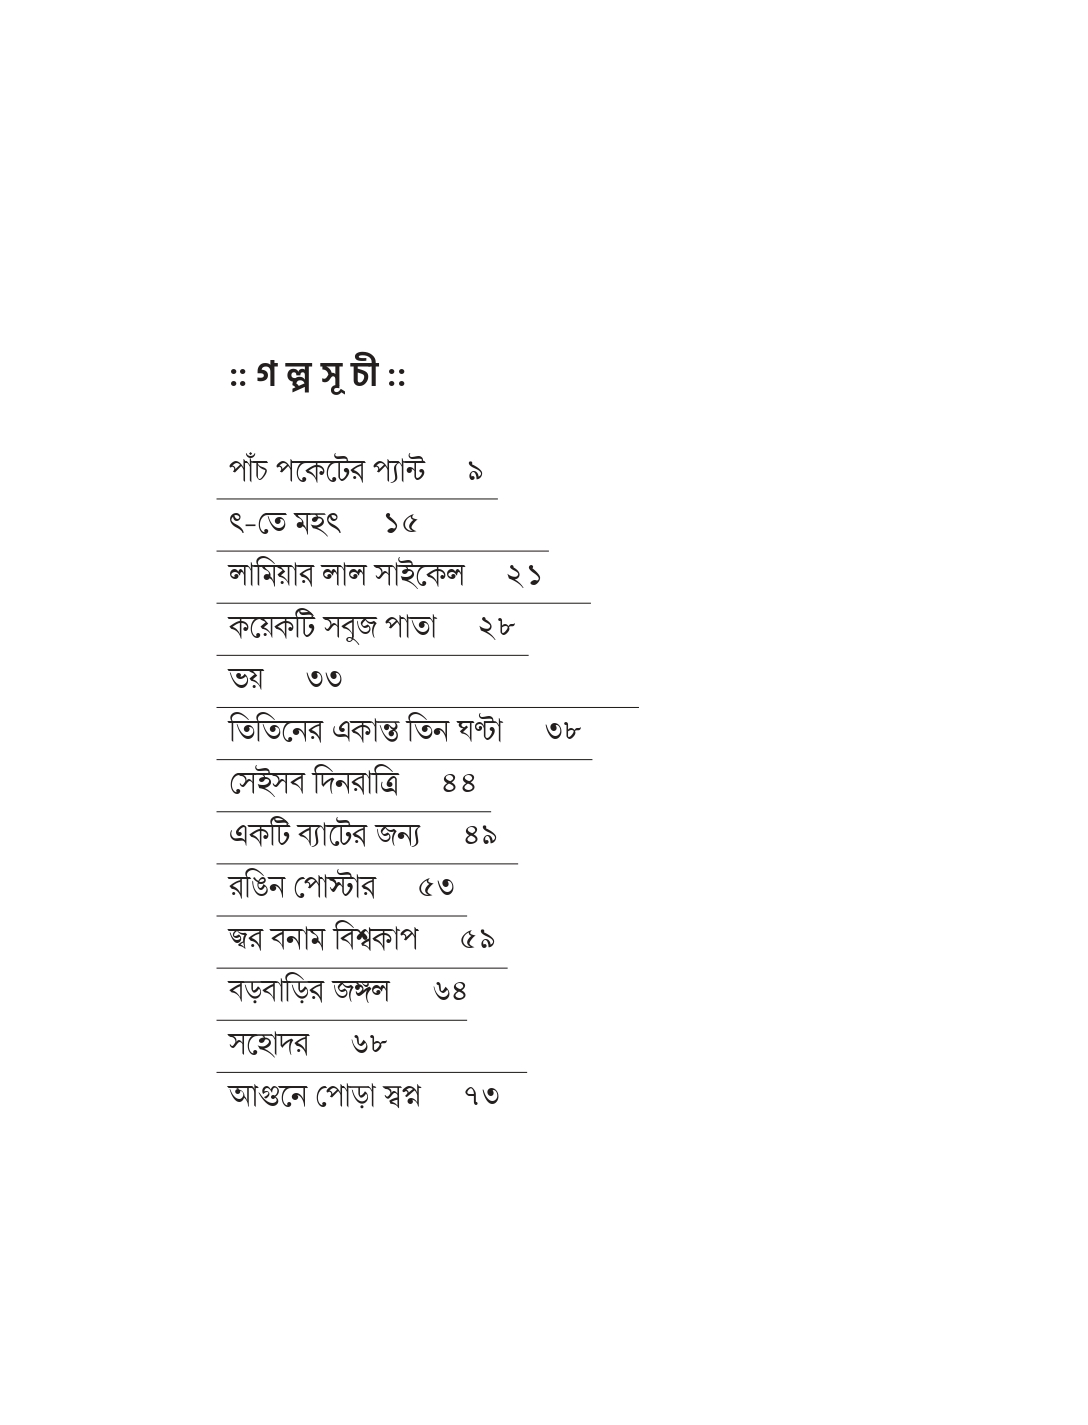 :: গ ল্প সূ চী ::
পাঁচ পকেটের প্যান্ট ৯
ৎ-তে মহৎ ১৫
লামিয়ার লাল সাইকেল ২১
কয়েকটি সবুজ পাতা ২৮
ভয় ৩৩
তিতিনের একান্ত তিন ঘণ্টা ৩৮
সেইসব দিনরাত্রি ৪৪
একটি ব্যাটের জন্য ৪৯
রঙিন পোস্টার ৫৩
জ্বর বনাম বিশ্বকাপ ৫৯
বড়বাড়ির জঙ্গল ৬৪
সহোদর ৬৮
আগুনে পোড়া স্বপ্ন ৭৩